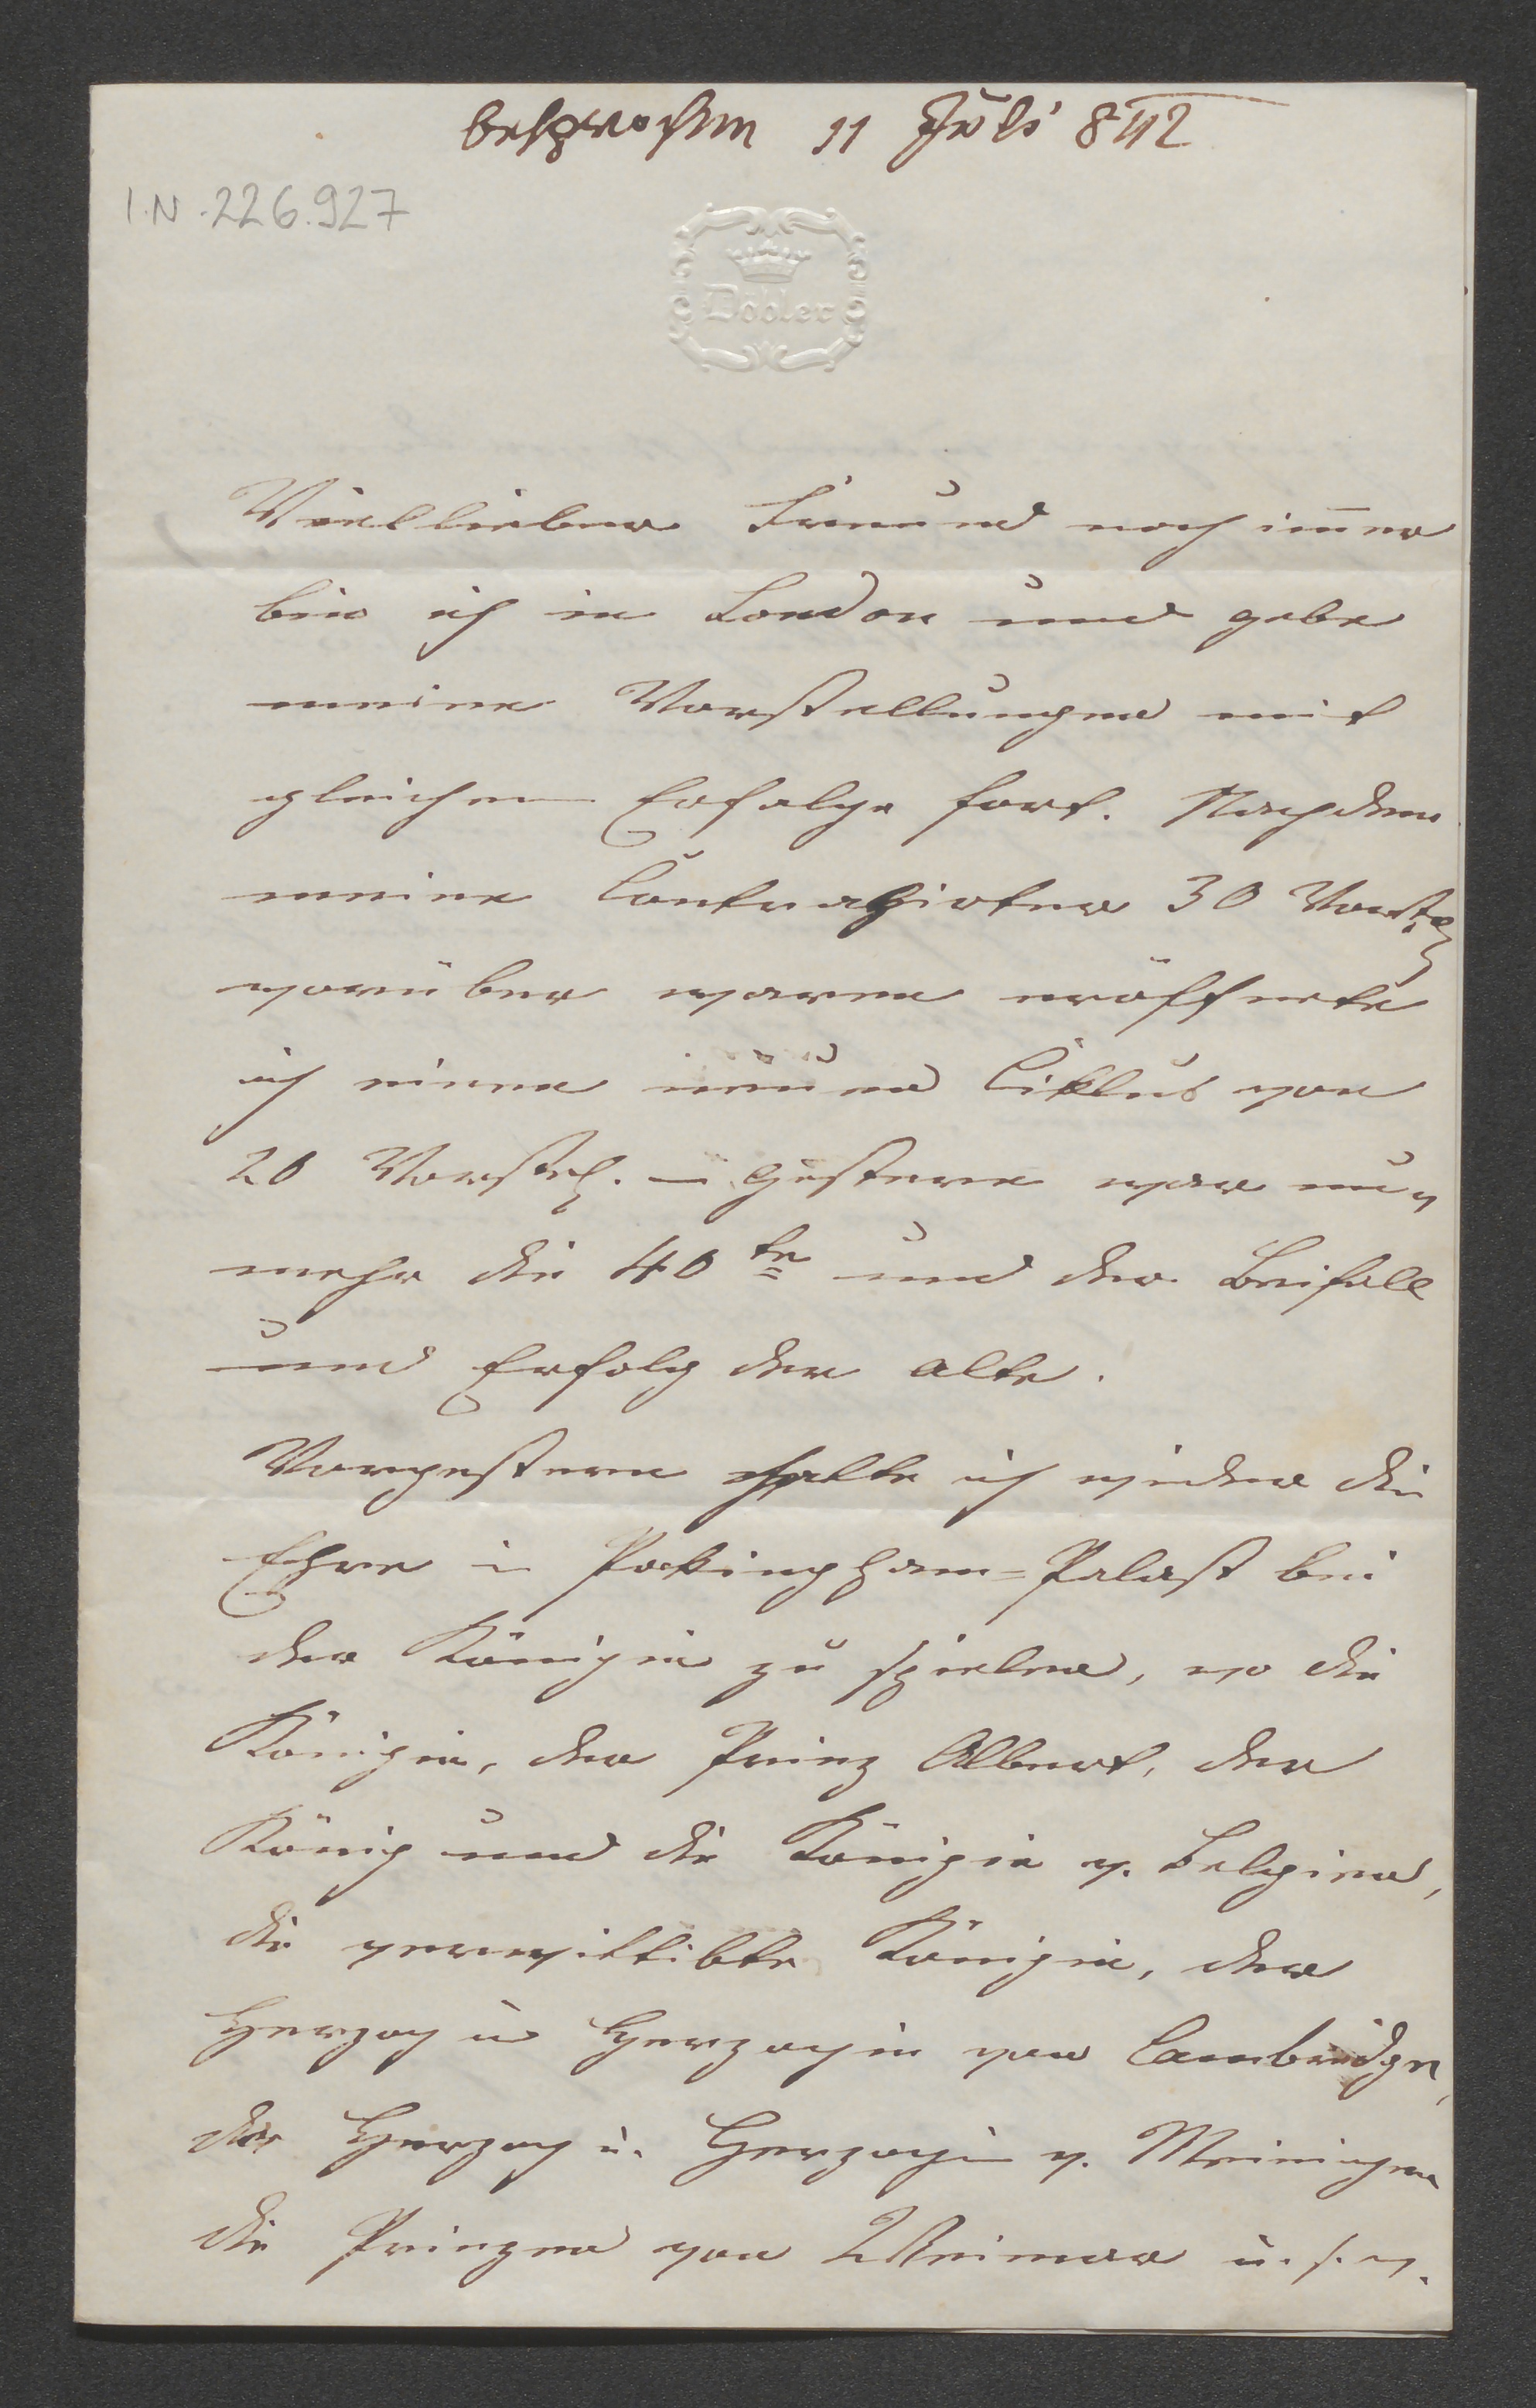 besprochen 11 Juli 842
I.N. 226.927
Döbler
Viellieber Freund noch im̅er
bin ich in London und gebe
meine Vorstellungen mit
gleichem Erfolge fort. Nachdem
meine Contrahirten 30 Vorstel
vorüber waren eröffnete
ich einen neuen Ciklus von
20 Vorstel. – Gestern war nun
mehr die 40te und der Beifall
und Erfolg der alte.
Vorgestern hatte ich wieder die
Ehre in Pokingham=Palast bei
der Königin zu spielen, wo die
Königin, der Prinz Albert, der
König und die Königin v. Belgien,
die verwittibte Königin, der
Herzog u Herzogin von Cambridge,
der Herzog u. Herzogin v. Meiningen
die Prinzen von Weimar u. s. w.